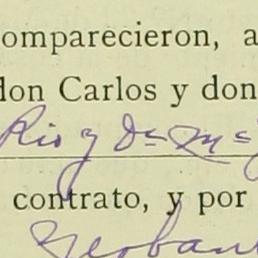 omparecieron, a
don Carlos y don
Rio y Dª Mª
contrato, y por